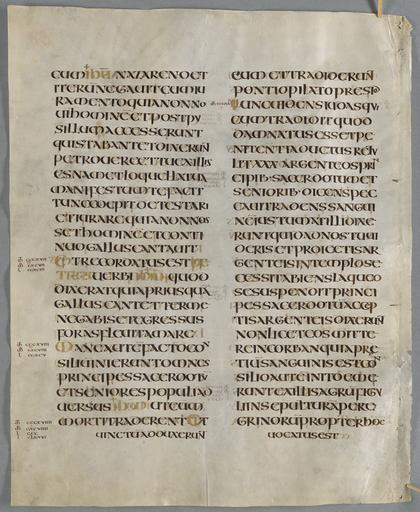 EUM IHU NAZARENO ET
ITERUM NEGAUIT CUM IU
RAMENTO QUIA NON NO
UI HOMINEM ET POST PU
SILLUM ACCESSERUNT
QUI STABANT ET DIXERUN
PETRO UERE ET TU EX ILLIS
ES NAM ET LOQUELLA TUA
MANIFESTUM TE FACIT
TUNC COEPIT DETESTARI
ET IURARE QUIA NON NOS
SET HOMINEM ET CONTI
NUO GALLUS CANTAUIT
ET RECORDATUS EST PE
TRUS UERBI IHU QUOD
DIXERAT QUIA PRIUSQUA
GALLUS CANTET TER ME
NEGABIS ET EGRESSUS
FORAS PLORAUIT AMARE
MANE AUTEM FACTO CON
SILIUM INIERUNT OMNES
PRINCIPES SACERDOTU
ET SENIORES POPULI AD
UERSUS IHM UT EUM
MORTI TRADERENT ET
UINCTUM ADDUXERUN
EUM ET TRADIDERUN
PONTIO PILATO PRESIDI
TUNC UIDENS IUDAS QUI
EUM TRADIDIT QUOD
DAMNATUS ESSET PE
NITENTIA DUCTUS RETU
LIT XXX ARGENTEOS PRIN
CIPIB· SACERDOTUM ET
SENIORIB· DICENS PEC
CAUI TRADENS SANGUI
NEM IUSTUM AT ILLI DIXE
RUNT QUID AD NOS TU UI
DERIS ET PROIECTIS AR
GENTEIS IN TEMPLO SE
CESSIT ABIENS LAQUEO
SE SUSPENDIT PRINCI
PES SACERDOTU ACCEP
TIS ARGENTEIS DIXERUN
NON LICET EOS MITTE
RE IN CORBAN QUIA PRE
TIUM SANGUINIS EST CON
SILIO AUTEM INITO EME
RUNT EX ILLIS AGRUM FIGU
LI IN SEPULTURA PERE
GRINORUM PROPTER HOC
UOCATUS EST